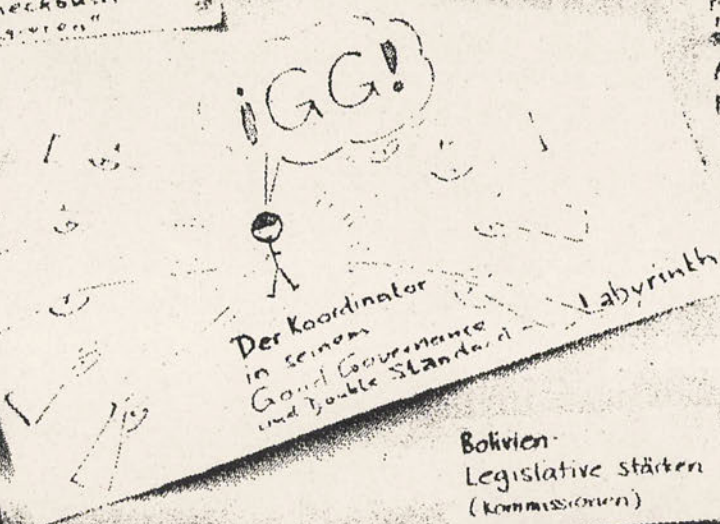 ¡GG!
Der Koordinator
in seinem
Good Governance
und Double Standard -
Labyrinth
Bolivien-
Legislative stärken
(Kommissionen)